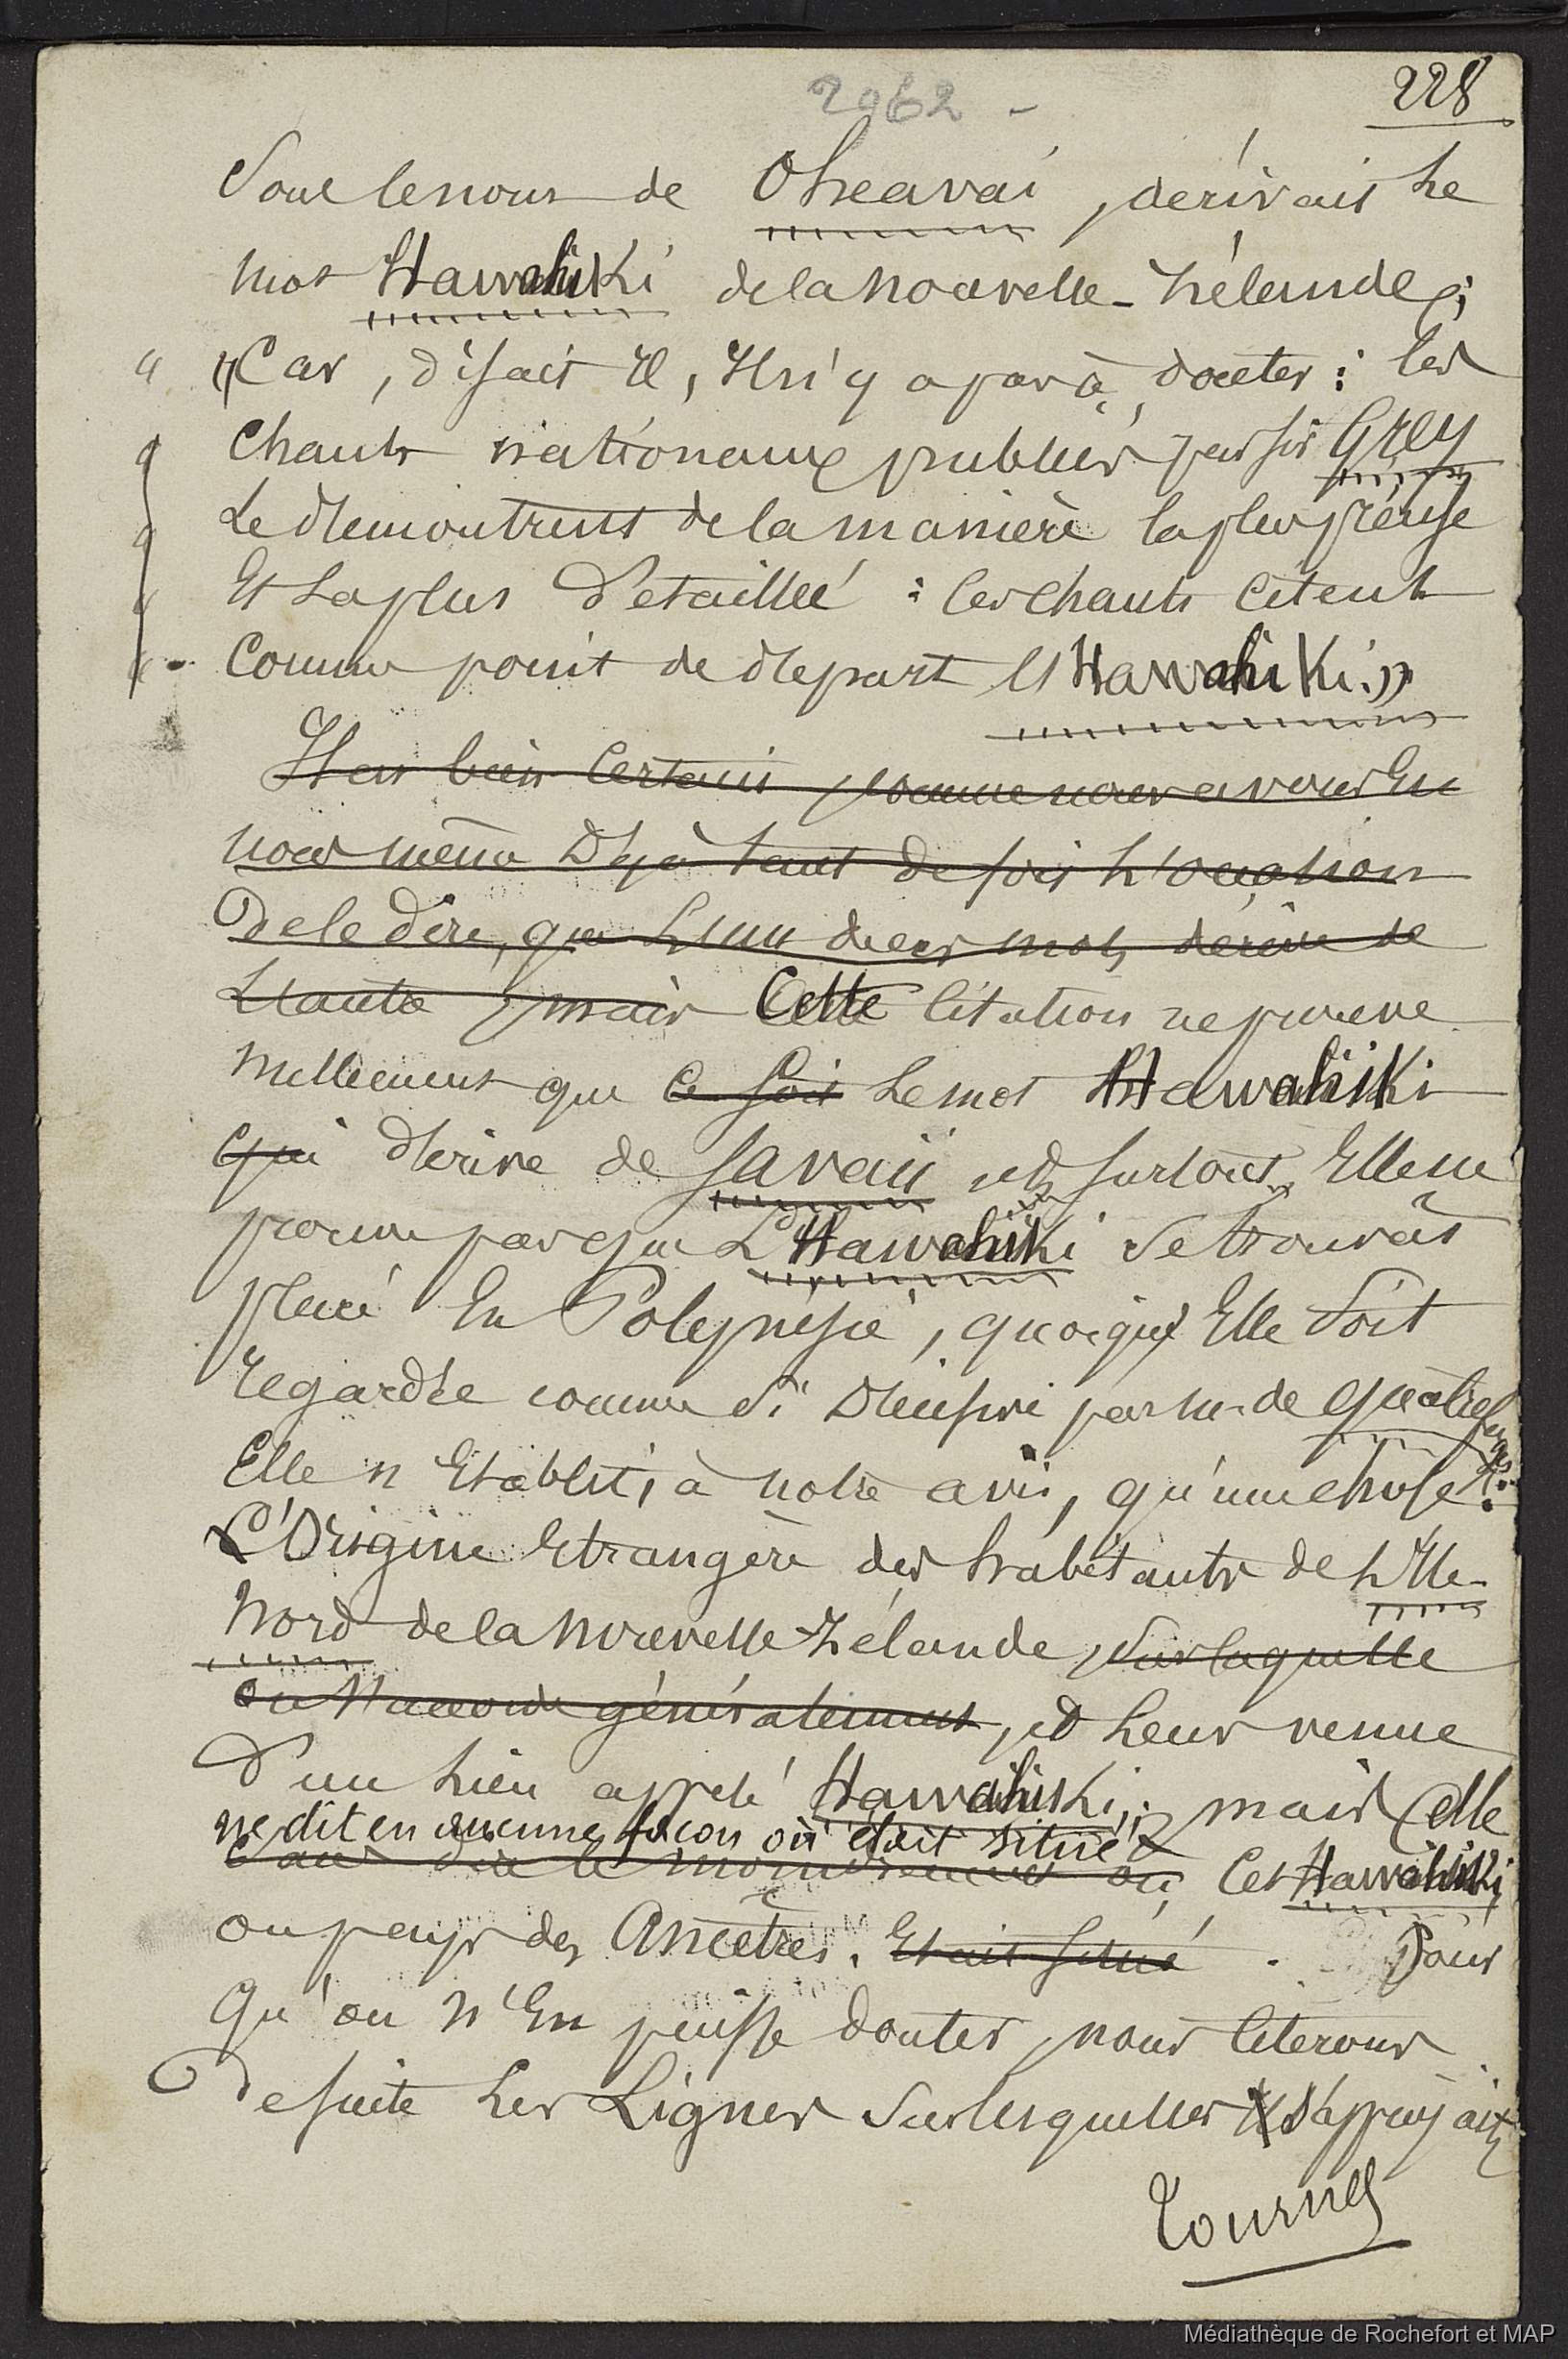 2962 -
228
Sous le nom de Oheavai, dérivait le
mot Hawahiki de la Nouvelle-Zélande;
" "Car, disait il, Il n'y a pas à douter: les
" Chants nationaux publiés par sir Grey
" Le démontrent de la manière la plus précise
" Et la plus détaillée: les chants citent
" Comme point de départ l'Hawahiki."
Il est bien certain, comme nous avons eu
nous même déjà tant de fois l'occasion
De le dire, que l'un de ces mots dérive de
L'autre, mais Cette citation ne prouve
nullement que ce soit le mot Hawahiki
qui dérive de Savaii, et surtout, Elle ne
prouve pas que L'Hawahiki se trouvât
placé En Polynésie, quoiqu'Elle soit
regardée comme si décisive par Mr. de Quatrefages.
Elle n'Etablit, à notre avis, qu'une chose:
L'Origine Etrangère des habitants de L'Ile-
Nord de la Nouvelle-Zélande, sur laquelle
on s'accorde généralement, et leur venue
d'un lieu appelé Hawahiki; mais Celle
ne dit en aucune façon où était situé
sans dire le moindrement où Cet Hawahiki
ou pays des Ancêtres. Etait situé. Pour
Qu'on n'En puisse douter, nous citerons
De suite les Lignes sur lesquelles il s'appuyait,
Tournez
Médiathèque de Rochefort et MAP